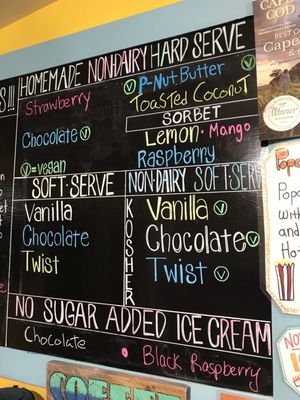 S!!!
HOMEMADE NON-DAIRY HARD SERVE
Strawberry
Ⓥ P-Nut Butter
Toasted Coconut
Chocolate Ⓥ
Ⓥ=vegan
SORBET
Lemon • Mango
Raspberry
SOFT-SERVE
Vanilla
Chocolate
Twist
KOSHER
NON-DAIRY SOFT-SER
Vanilla Ⓥ
Chocolate Ⓥ
Twist Ⓥ
NO SUGAR ADDED ICE CREAM
Chocolate
• Black Raspberry
CAPE
COD
BEST O
Cape
Winner
Popc
Popc
with
and
Hot
NOT